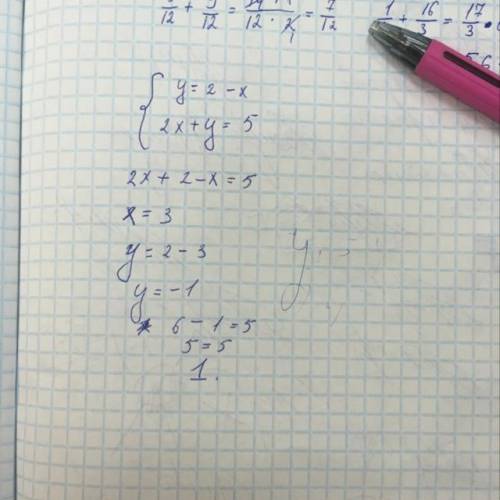 + 9/12 = 12 · 2 = 7/12
1 + 16/3 = 17/3 ·
y = 2 - x
2x + y = 5
2x + 2 - x = 5
x = 3
y = 2 - 3
y = -1
6 - 1 = 5
5 = 5
1.